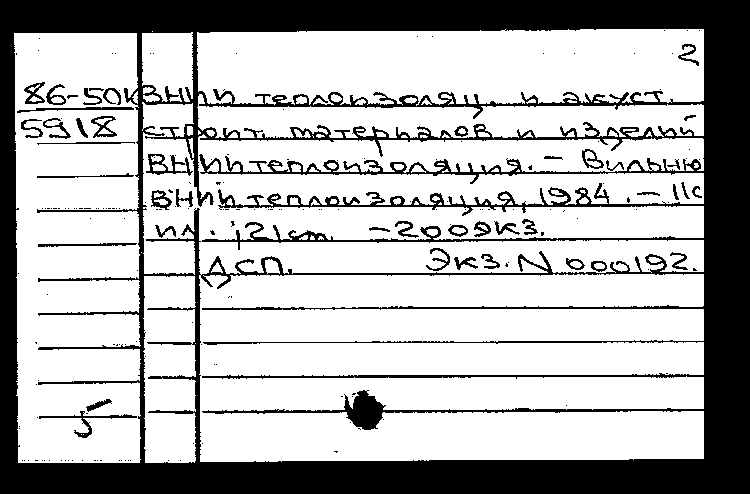 2
86-50К ВНИИ теплоизоляц. и акуст.
5918 строит. материалов и изделий
ВНИИтеплоизоляция. – Вильню
ВНИИтеплоизоляция, 1984. – 11с
ил.; 21 см. – 200экз.
ДСП. Экз. N 000192.
5